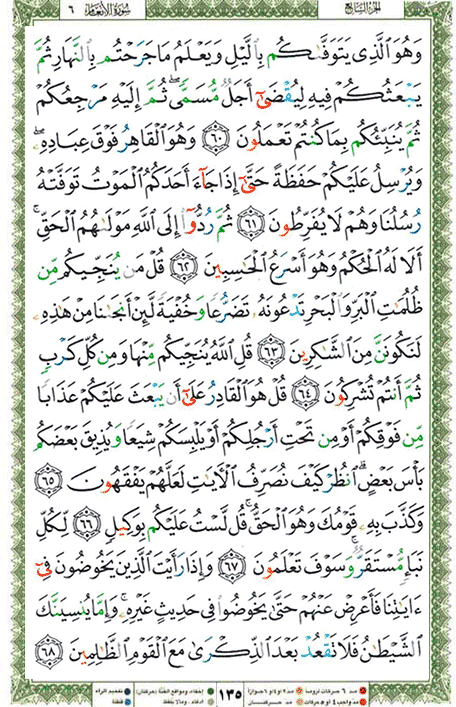 الجزء السابع ٦ سورة الأنعام
وَهُوَ ٱلَّذِى يَتَوَفَّىٰكُم بِٱلَّيْلِ وَيَعْلَمُ مَا جَرَحْتُم بِٱلنَّهَارِ ثُمَّ
يَبْعَثُكُمْ فِيهِ لِيُقْضَىٰٓ أَجَلٌ مُّسَمًّى ۖ ثُمَّ إِلَيْهِ مَرْجِعُكُمْ
ثُمَّ يُنَبِّئُكُم بِمَا كُنتُمْ تَعْمَلُونَ ٦٠ وَهُوَ ٱلْقَاهِرُ فَوْقَ عِبَادِهِۦ ۖ
وَيُرْسِلُ عَلَيْكُمْ حَفَظَةً حَتَّىٰٓ إِذَا جَآءَ أَحَدَكُمُ ٱلْمَوْتُ تَوَفَّتْهُ
رُسُلُنَا وَهُمْ لَا يُفَرِّطُونَ ٦١ ثُمَّ رُدُّوٓا۟ إِلَى ٱللَّهِ مَوْلَىٰهُمُ ٱلْحَقِّ ۚ
أَلَا لَهُ ٱلْحُكْمُ وَهُوَ أَسْرَعُ ٱلْحَٰسِبِينَ ٦٢ قُلْ مَن يُنَجِّيكُم مِّن
ظُلُمَٰتِ ٱلْبَرِّ وَٱلْبَحْرِ تَدْعُونَهُۥ تَضَرُّعًا وَخُفْيَةً لَّئِنْ أَنجَىٰنَا مِنْ هَٰذِهِۦ
لَنَكُونَنَّ مِنَ ٱلشَّٰكِرِينَ ٦٣ قُلِ ٱللَّهُ يُنَجِّيكُم مِّنْهَا وَمِن كُلِّ كَرْبٍ
ثُمَّ أَنتُمْ تُشْرِكُونَ ٦٤ قُلْ هُوَ ٱلْقَادِرُ عَلَىٰٓ أَن يَبْعَثَ عَلَيْكُمْ عَذَابًا
مِّن فَوْقِكُمْ أَوْ مِن تَحْتِ أَرْجُلِكُمْ أَوْ يَلْبِسَكُمْ شِيَعًا وَيُذِيقَ بَعْضَكُم
بَأْسَ بَعْضٍ ۗ ٱنظُرْ كَيْفَ نُصَرِّفُ ٱلْءَايَٰتِ لَعَلَّهُمْ يَفْقَهُونَ ٦٥
وَكَذَّبَ بِهِۦ قَوْمُكَ وَهُوَ ٱلْحَقُّ ۚ قُل لَّسْتُ عَلَيْكُم بِوَكِيلٍ ٦٦ لِّكُلِّ
نَبَإٍ مُّسْتَقَرٌّ ۚ وَسَوْفَ تَعْلَمُونَ ٦٧ وَإِذَا رَأَيْتَ ٱلَّذِينَ يَخُوضُونَ فِىٓ
ءَايَٰتِنَا فَأَعْرِضْ عَنْهُمْ حَتَّىٰ يَخُوضُوا۟ فِى حَدِيثٍ غَيْرِهِۦ ۚ وَإِمَّا يُنسِيَنَّكَ
ٱلشَّيْطَٰنُ فَلَا تَقْعُدْ بَعْدَ ٱلذِّكْرَىٰ مَعَ ٱلْقَوْمِ ٱلظَّٰلِمِينَ ٦٨
١٣٥
مد ٦ حركات لزوما مد ٢ او ٤ او ٦ جوازا إخفاء، ومواقع الغنة (حركتان) تفخيم الراء
مد واجب ٤ او ٥ حركات مد حركتان ادغام، ومالا يلفظ قلقلة